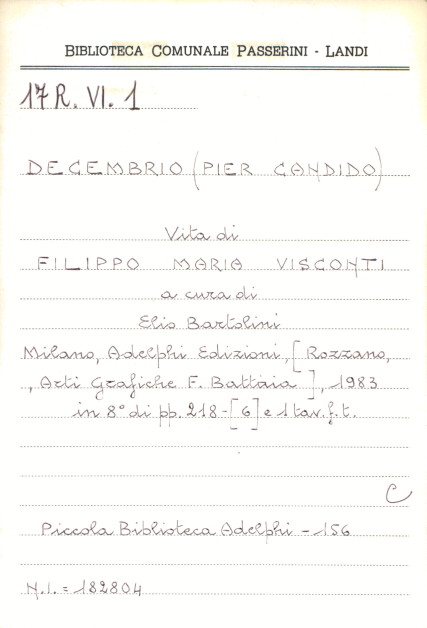 BIBLIOTECA COMUNALE PASSERINI - LANDI
17 R. VI. 1
DECEMBRIO (PIER CANDIDO)
Vita di
FILIPPO MARIA VISCONTI
a cura di
Elio Bartolini
Milano, Adelphi Edizioni, [Rozzano,
, Arti Grafiche F. Battaia], 1983
in 8° di pp. 218-[6] e 1 tav. f. t.
C
Piccola Biblioteca Adelphi - 156
N.I. = 182804